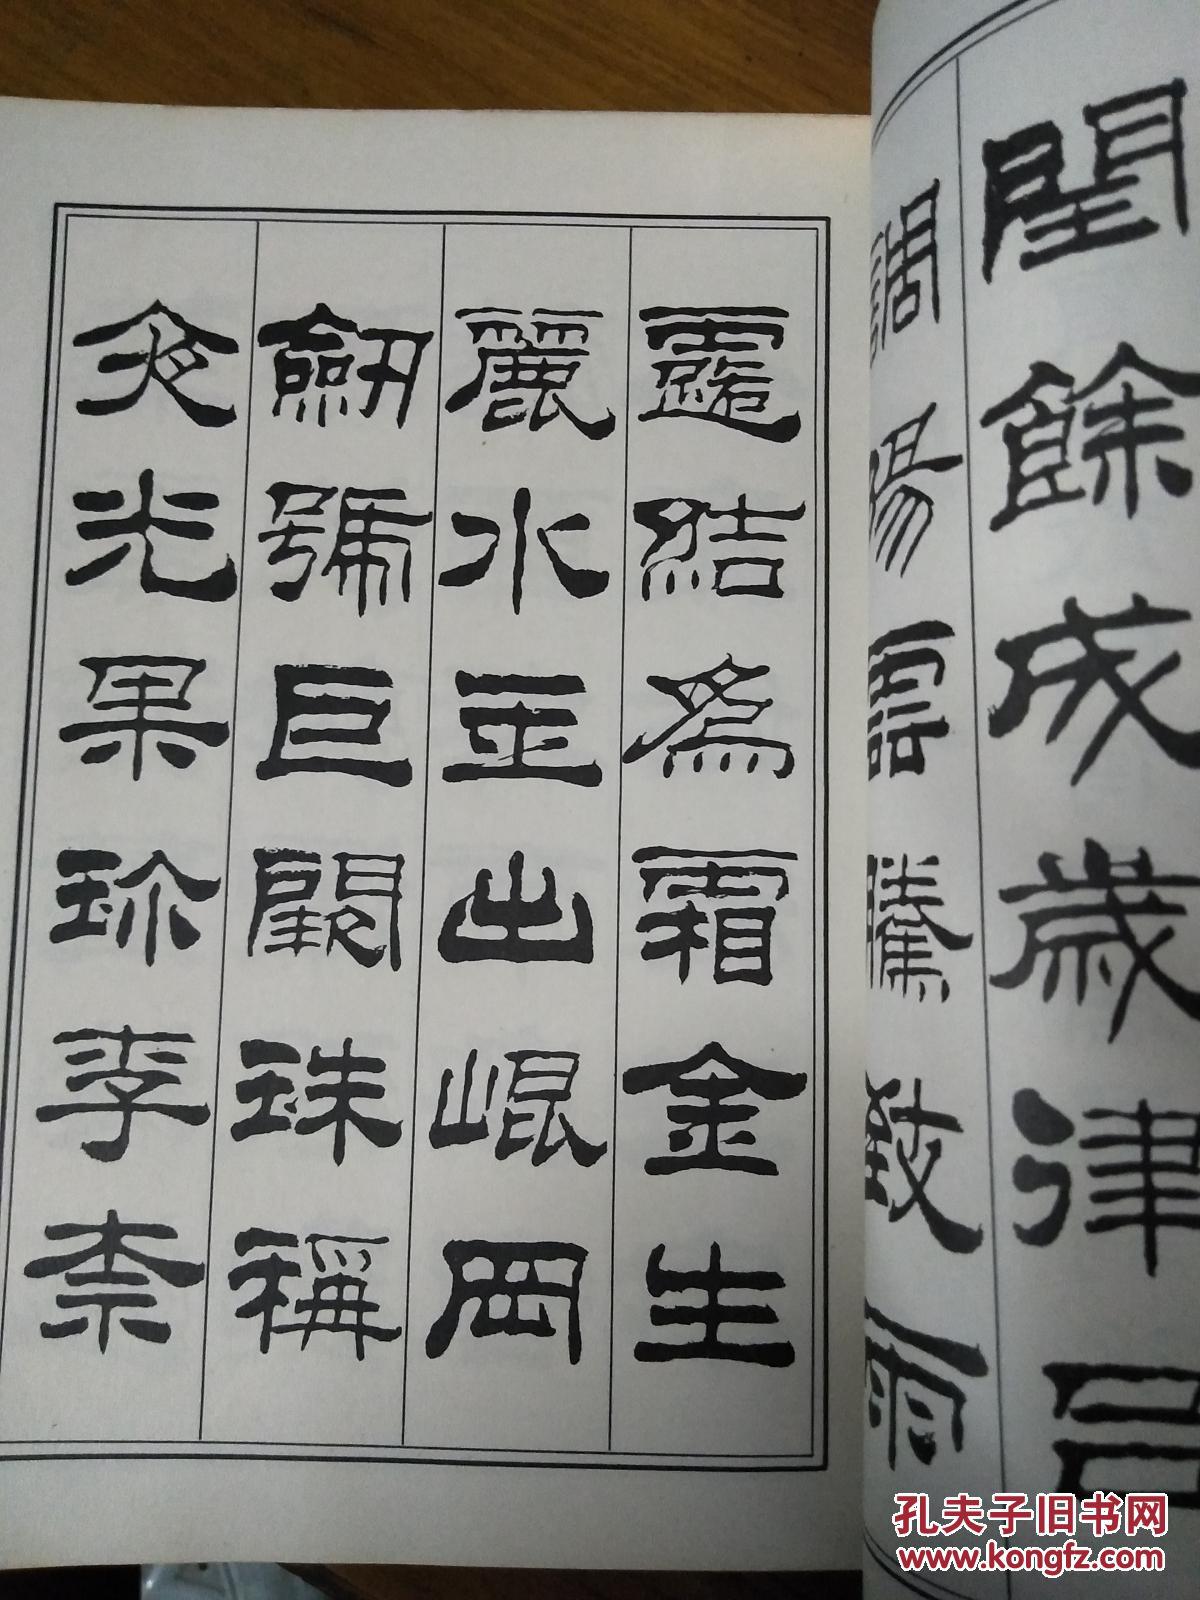 閏餘成歲律吕
調陽雲騰致雨
露結為霜金生
麗水玉出崐岡
劒號巨闕珠稱
夜光果珍李柰
孔夫子旧书网
www.kongfz.com